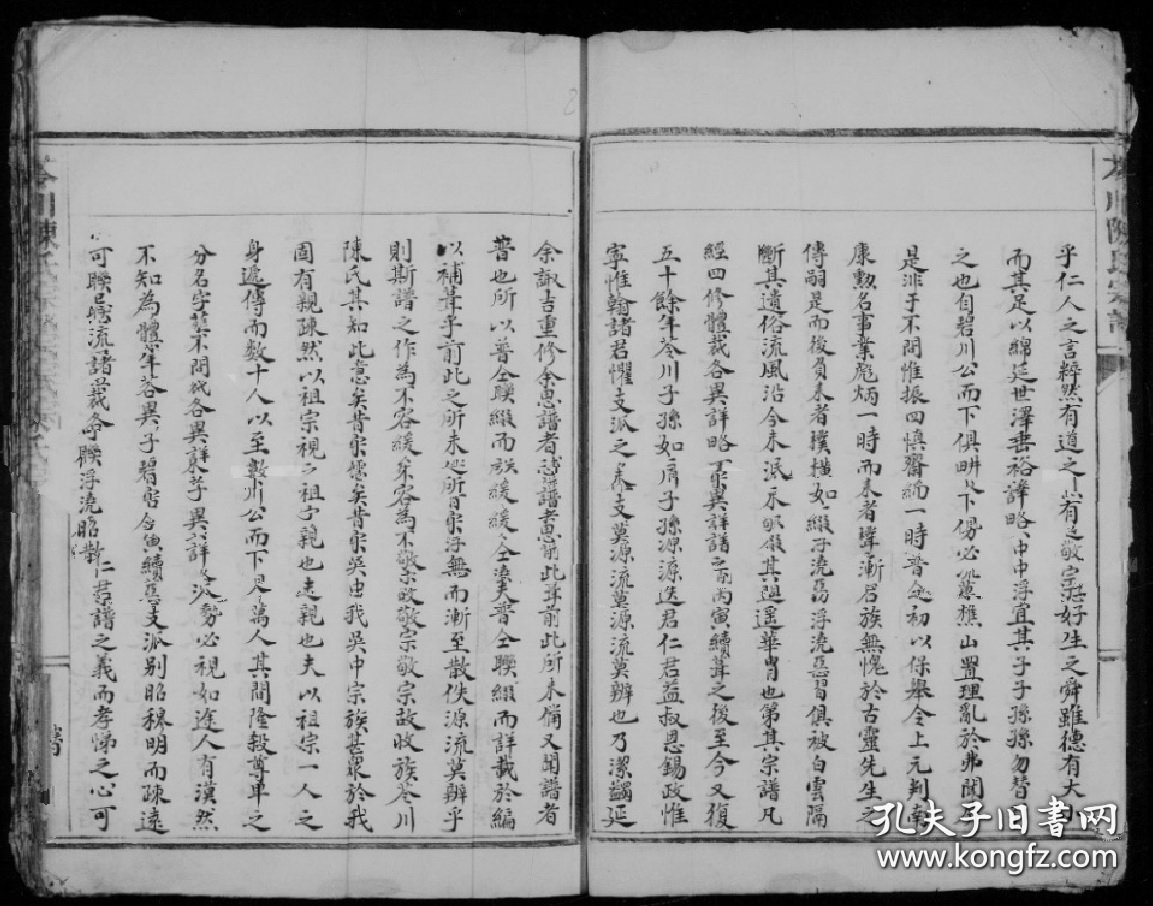 乎仁人之言粹然有道之有敬宗好生之舜雖德有大
而其足以綿延世澤垂裕諱略中中浮宜其子子孫孫勿替
之也自碧川公而下俱耕下傍必巢樵山置理亂於弗聞
是非于不問惟振四慎齋編一時普初以保舉令上元判南
康勲名事業彪炳一時而來者聲漸居族無愧於古靈先生之
傳嗣是而後負耒者樸橫如綴子流惡浮流惡習俱被白雲隔
斷其遺俗流風沿今未泯永其遐遥華胄也第其宗譜凡
經四修體裁各異詳略異詳譜之丙寅續葺之後至今又復
五十餘年苓川子孫如子孫源源迭君仁君益叔恩錫政惟
寧惟翰諸君懼支派之支莫源流莫源流莫辨也乃潔齒延
余諏吉重修余思譜者譜者此耳前此所未備又聞譜者
普也所以普全聯綴而族緩緩全普全聯綴而詳裁於編
以補葺乎前此之所未所宗浮無而漸至散佚源流莫辨乎
則斯譜之作為不容緩容為不敬宗敬宗故收族苓川
陳氏其知此意矣昔宗矣昔宗吳由我吳中宗族甚衆於我
固有親疎然以祖宗視之祖子親也夫親也夫以祖宗一人之
身遞傳而數十人以至川公而下萬人其間隆殺尊卑之
分名字不問各異詳異詳派勢必視如途人有漠然
不知為體各異子碧宏寅續支派别昭穆明而疎遠
可聯流諸裁令聯浮流昭仁君譜之義而孝悌之心可
孔夫子旧书网
www.kongfz.com